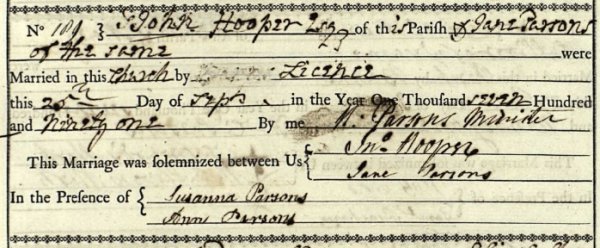 No 189 { John Hooper Esqr of this Parish & Jane Parsons
of the same were
Married in this Church by Licence
this 20th Day of Septr. in the Year One Thousand seven Hundred
and Ninety one By me W: Parsons Minister
This Marriage was solemnized between Us { Jno. Hooper
Jane Parsons
In the Presence of { Susanna Parsons
Ann Parsons